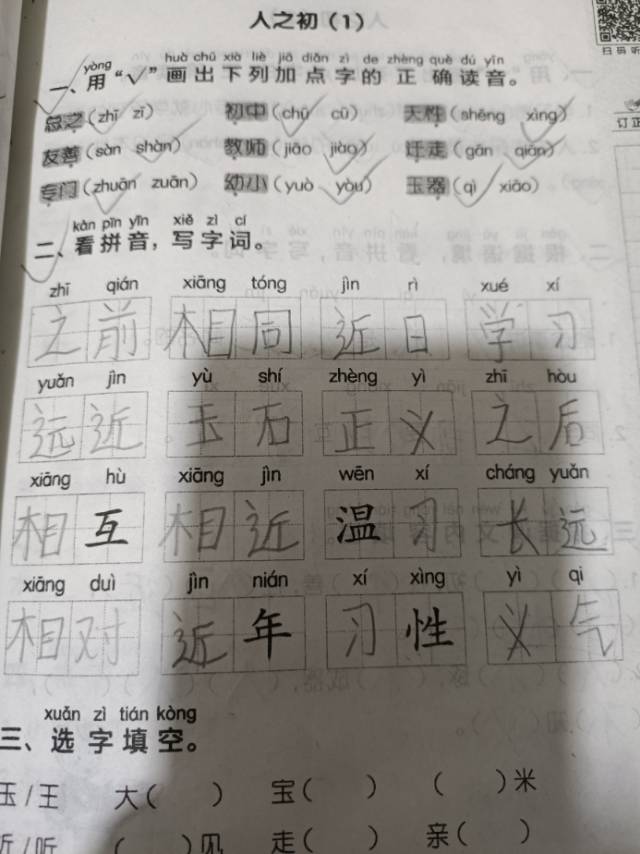 人之初（1）
扫码听
yòng huà chū xià liè jiā diǎn zì de zhèng què dú yīn
一、用“√”画出下列加点字的正确读音。
订正
总之（zhī zī） 初中（chū cū） 天性（shēng xìng）
友善（sàn shàn） 教师（jiāo jiào） 迁走（gān qiān）
专门（zhuān zuān） 幼小（yuò yòu） 玉器（qì xiāo）
kàn pīn yīn xiě zì cí
二、看拼音，写字词。
zhī qián xiāng tóng jìn rì xué xí
之前 相同 近日 学习
yuǎn jìn yù shí zhèng yì zhī hòu
远近 玉石 正义 之后
xiāng hù xiāng jìn wēn xí cháng yuǎn
相互 相近 温习 长远
xiāng duì jìn nián xí xìng yì qi
相对 近年 习性 义气
xuǎn zì tián kòng
三、选字填空。
玉/王 大（ ） 宝（ ） （ ）米
近/听 （ ）见 走（ ） 亲（ ）